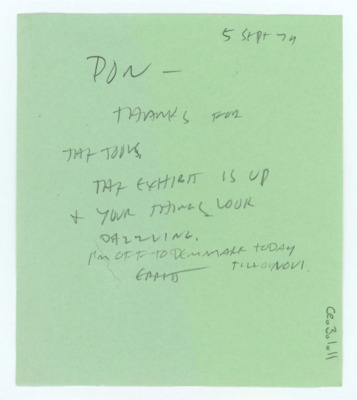 5 SEPT 79
DON —
THANKS FOR
THE TOOLS.
THE EXHIBIT IS UP
& YOUR THINGS LOOK
DAZZLING.
I'M OFF TO DENMARK TODAY
TILL NOV 1.